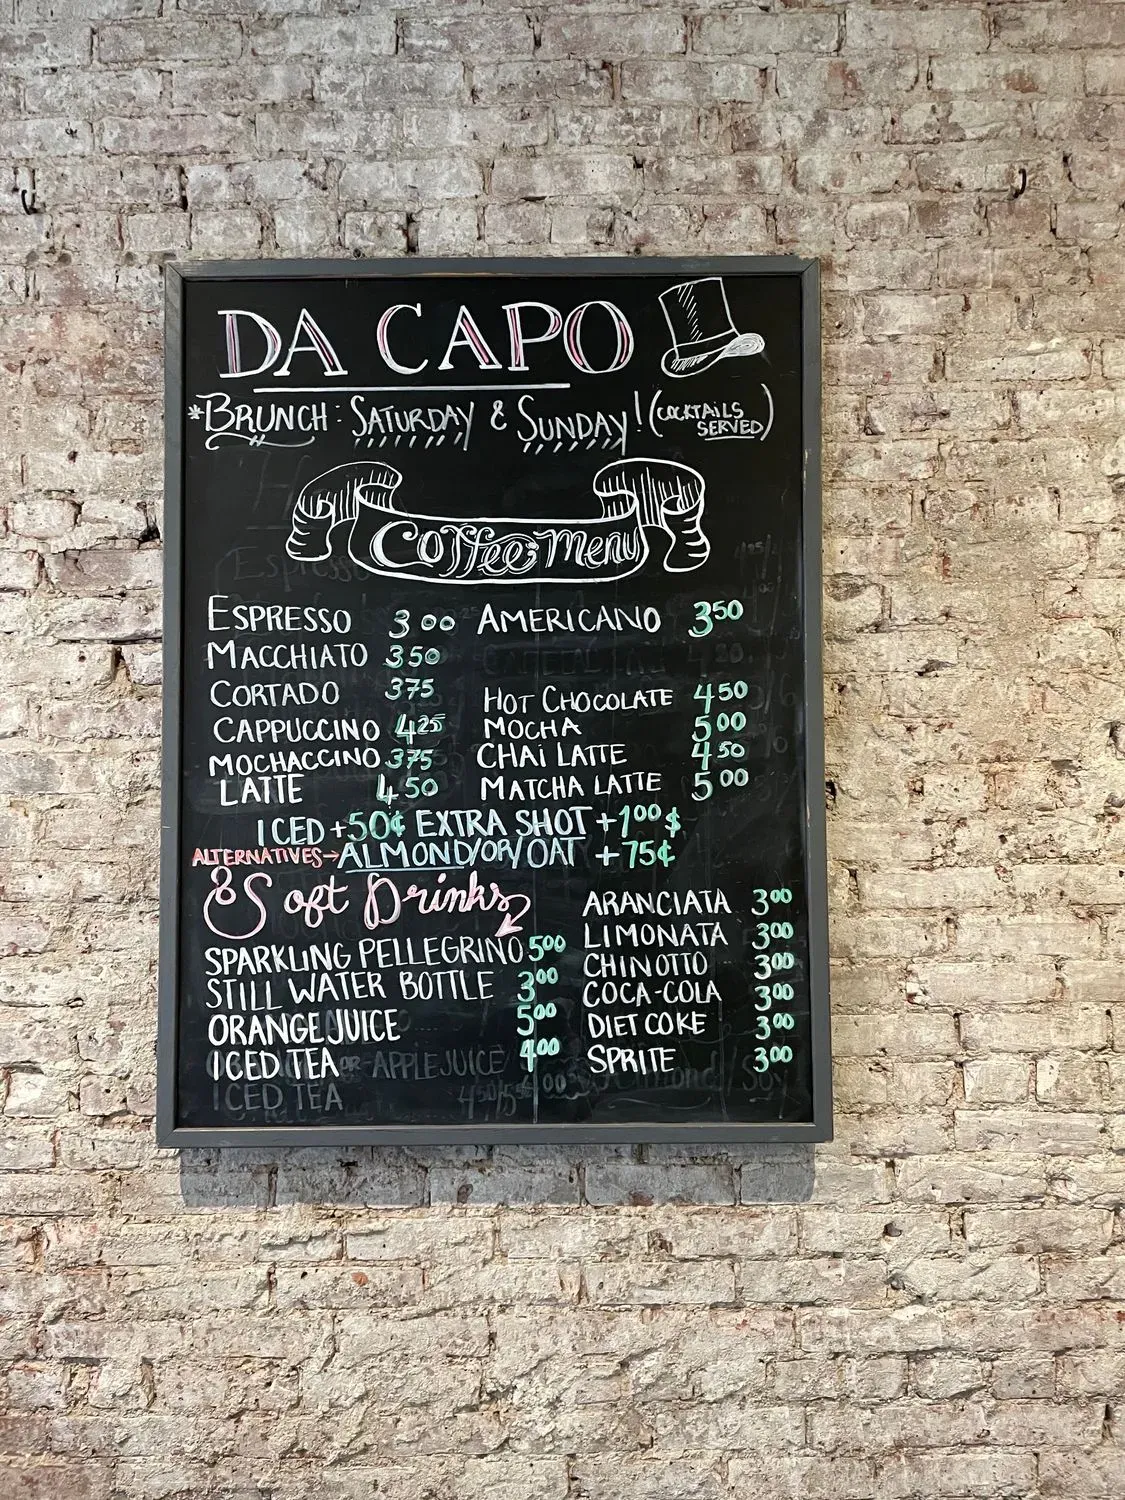 DA CAPO
*BRUNCH: SATURDAY & SUNDAY! (COCKTAILS SERVED)
Coffee Menu
ESPRESSO 3.00
MACCHIATO 3.50
CORTADO 375
CAPPUCCINO 4.25
MOCHACCINO 375
LATTE 4.50
AMERICANO 3.50
HOT CHOCOLATE 4.50
MOCHA 5.00
CHAi LATTE 4.50
MATCHA LATTE 5.00
ICED +50¢ EXTRA SHOT +1.00$
ALTERNATIVES→ ALMOND/OR/OAT +75¢
Soft Drinks
SPARKLING PELLEGRINO 500
STILL WATER BOTTLE 300
ORANGE JUICE 500
ICED TEA 400
OR APPLE JUICE
ICED TEA
ARANCIATA 300
LIMONATA 300
CHINOTTO 300
COCA-COLA 300
DIET COKE 300
SPRITE 300